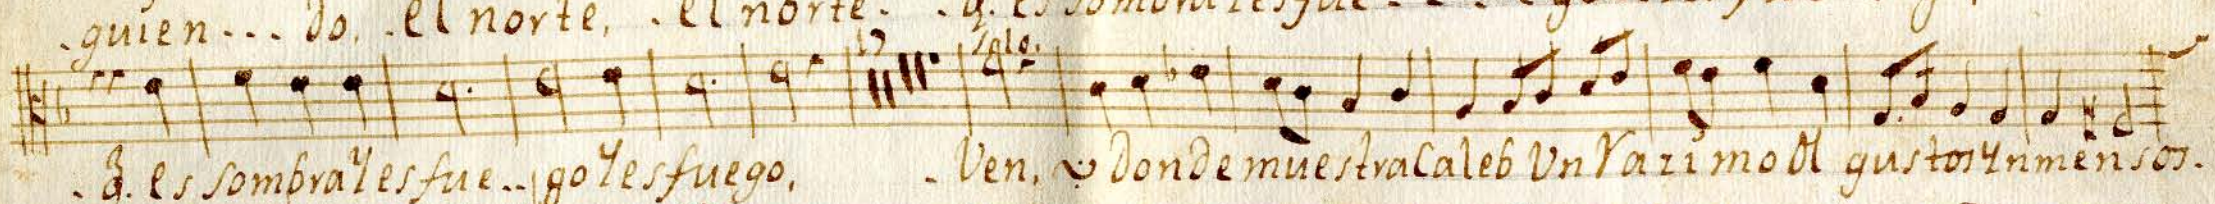 guien... do, el norte, el norte. q. es sombra
17 Solo.
q. es sombra Y es fue.. go Y es fuego, Ven, Donde muestra Caleb Un Razimo gustos Ynmensos.